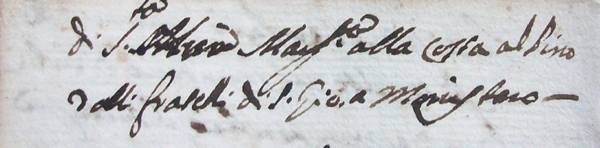 di S.ta Mag.re alla Cossa al Pino
dalli fratelli di S. Gio. a Monistero —